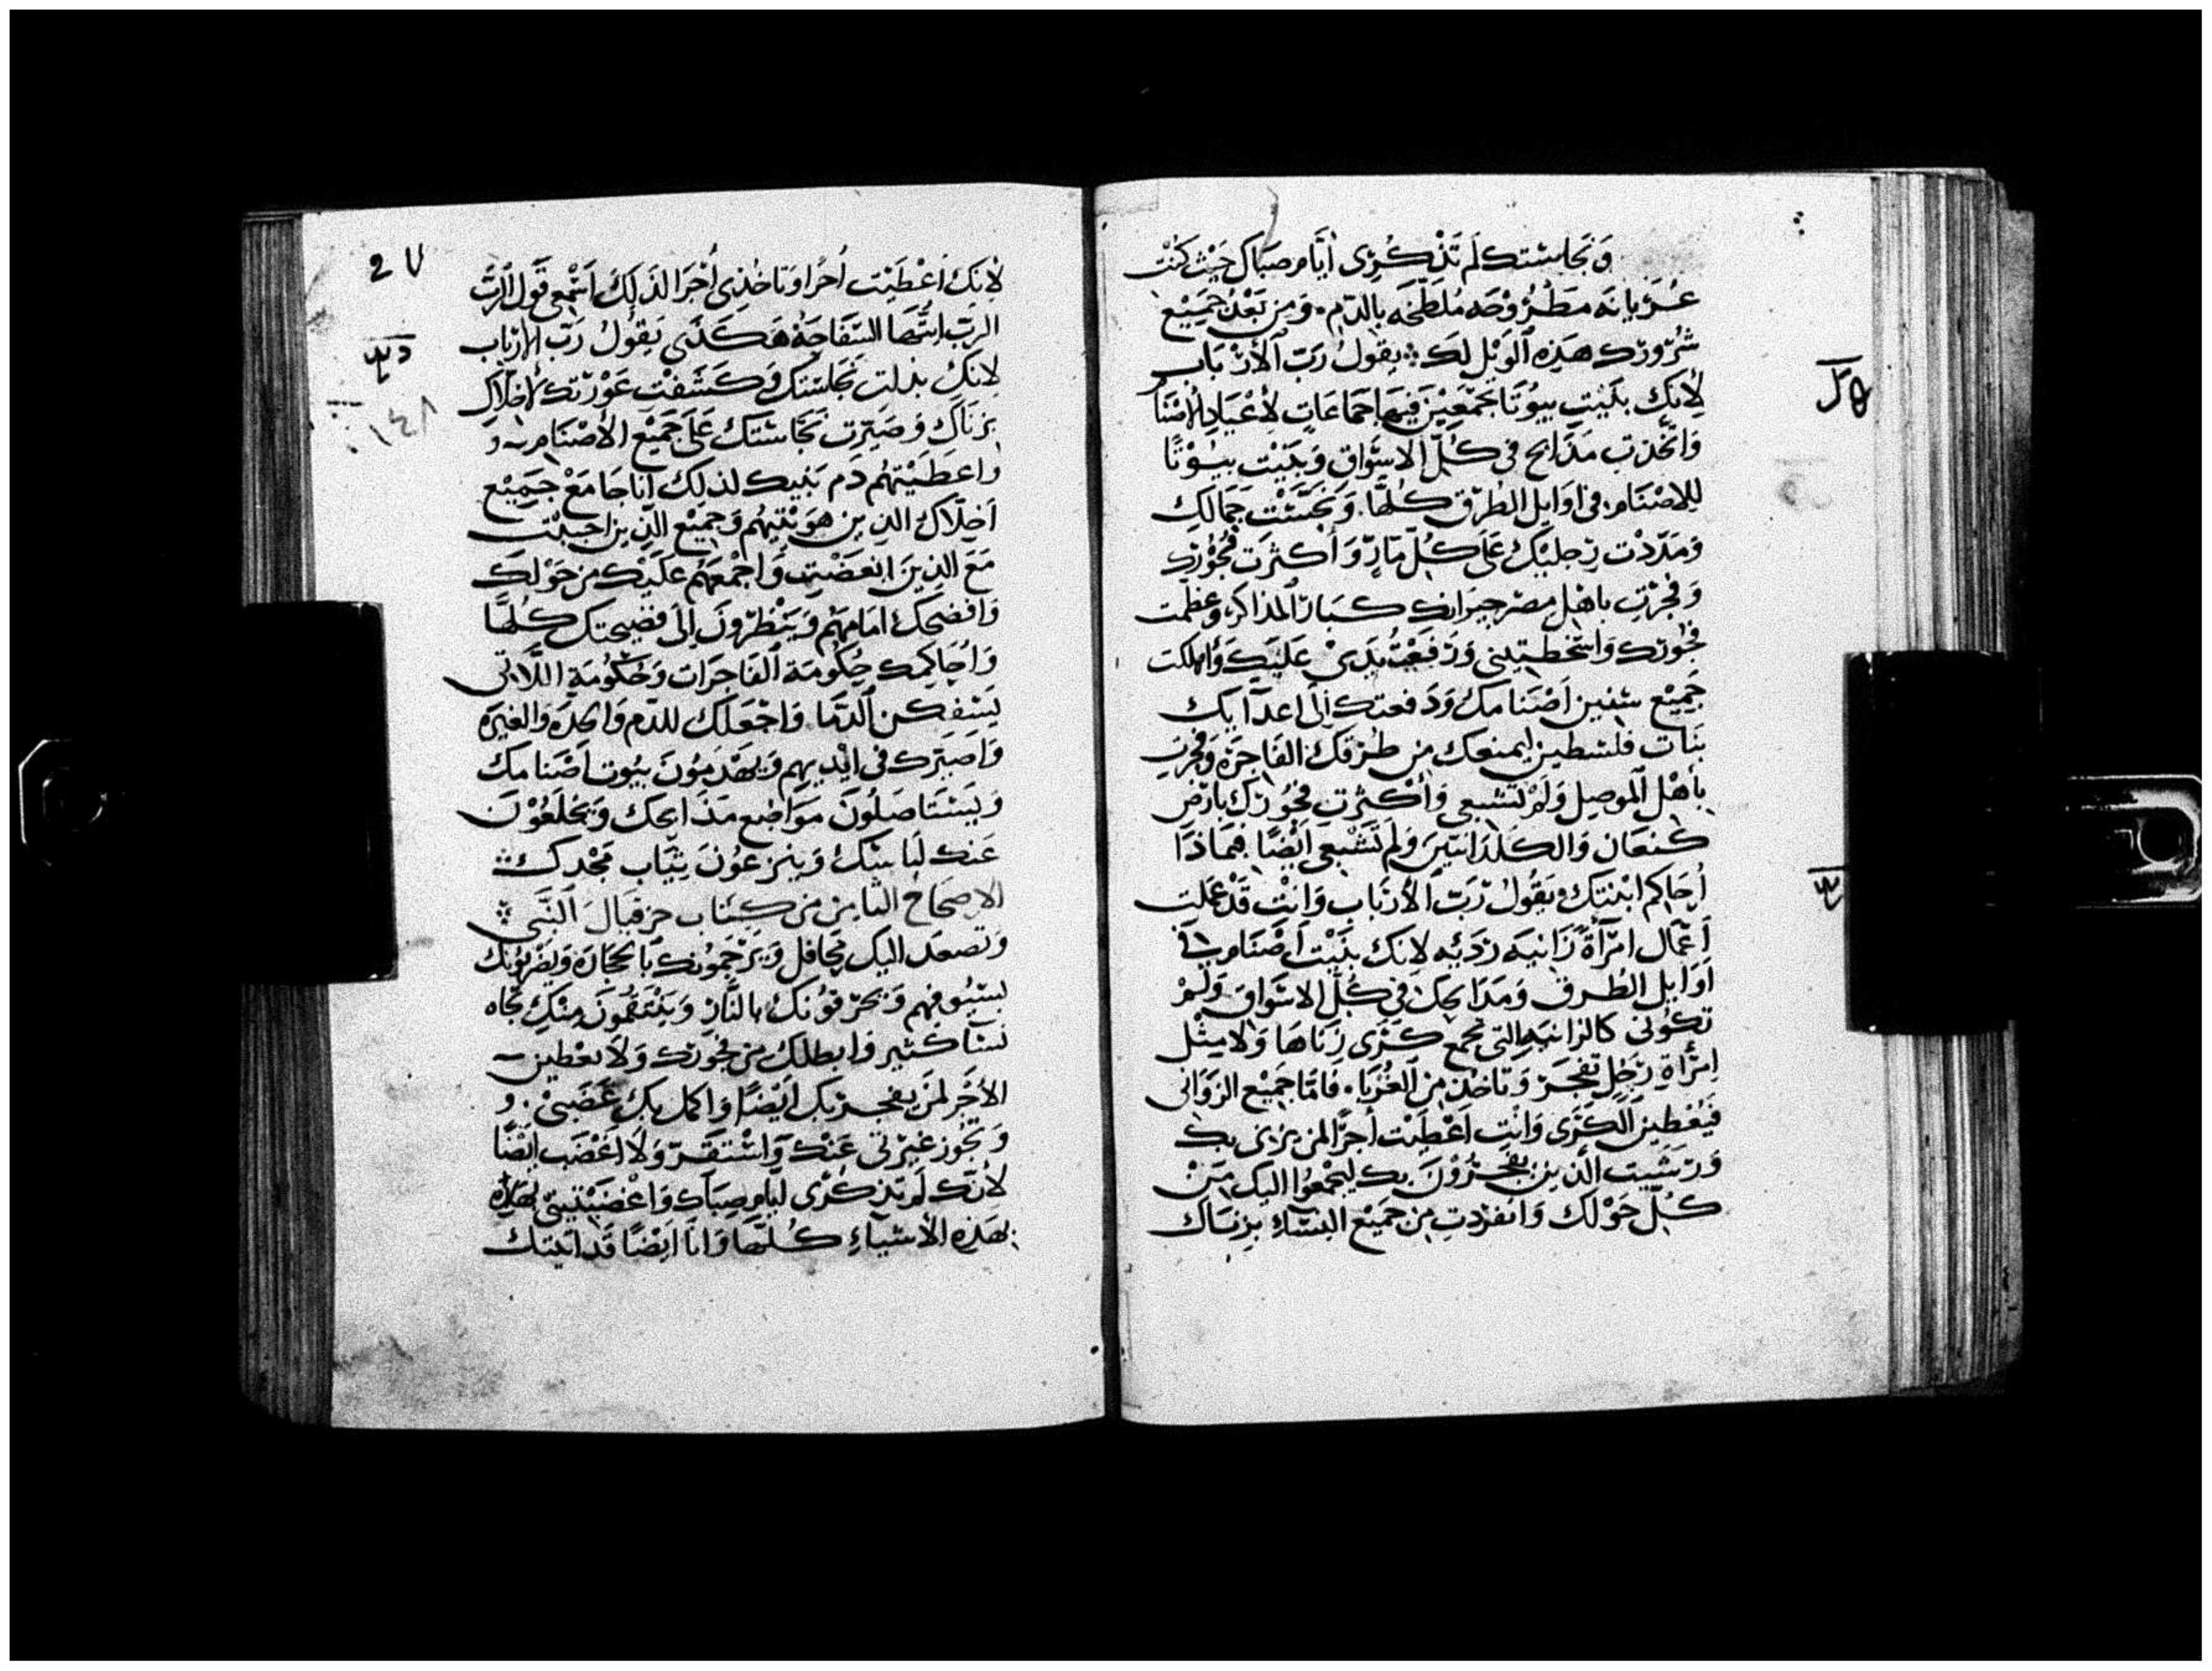 وَنَجَاستك لَم تَذْكُرِى أيَّام صَبَاكِ حَيْث كنْت
عُرْيانَه مَطرُوْحَه مُلطخَه بِالدَّم. وَمِن بَعْد جَمِيْع
شُرُورِك هَذِه الوَيْل لك يقول رَبّ الأرْبَاب
لأنك بَنَيت بيُوتًا تجمّعِيْن فيهَا جَمَاعَاتٍ لأعْيَاد الأصْنَا
وَاتّخَذت مَذَابح فى كُلّ الاسْوَاق وَبَنَيْت بيُوْتًا
للاصْنَام فى اوَايل الطُرق كلهَّا. وَنَجَّسْتِ جمَالكِ
وَمَدّدْت رِجليْك عَلى كُلّ مَارٍّ وَأكثرَت فُجُوْرك
وَفجرْتِ باهْل مصْر جيرَانك كبَار المذاكر وعظمْت
فجورك وَاسْخطتينى وَرَفعْتُ يَدِىْ عَليك وَاهلكت
جَميْع سُنن اَصْنَامك وَدَفعتك إلى اعدَآيك
بنَات فلسْطين ليمنعك من طرُقك الفَاجرَة وَفجرتِ
بأهْل الموصِل وَلمْ تشبعى وَأكثرتِ فجُورَك بارْض
كنعَان وَالكلدَانيّين وَلم تَشْبعى أيْضًا فِمَاذَا
أحَاكم ابْنتَك يَقُولُ رَبّ الأرْبَاب وَانْتِ قَدْ عَملت
أعْمَال امْرَأةٍ زَانيَه رَديّه لانك بنَيْت أصْنَام فى
اوَايل الطُرق وَمَذابحك فى كُلّ الاسْوَاق وَلمْ
تكونى كالزانيَه التى تجمع كَرَى زِنَاهَا وَلا مِثْل
امْرَأةِ رَجُلٍ تفجرْ وَتَاخذ مِن الغُرَبَاء فَامّا جَميْع الزوَانى
فيُعْطين الكرَى وَانْتِ اعْطيْت أجرًا لمن يزنى بك
وَرَشَيت الذين يفجرُوْنَ بك ليجْمعُوا اليك مِنْ
كُلّ حَوْلك وَانفرَدتِ من جَميْع النسَّاء بِزنَاك
2 ٧
لأنك أعْطيْت أجرًا وَتاخذِى أجرَا لذَلك اسْمعى قَول الرَّبّ
الربّ ايتهَا السّفَاحَةُ هَكَذَى يقُولُ رَبّ الأربَاب
لانك بذلت نجَاستك وَكشَفْت عَوْرَتك لأخلّاكِ
بزنَاك وَصَيّرت نجاسَتك عَلى جَميْع الأصْنَام وَ
وَاعطَيْتهُم دَم بَنيك لذلك أنا جَامعْ جَميْع
اخلّاك الذين هَوَيْتيهُم وَجميْع الذين احْببْت
مَعَ الذِينَ ابْغضْتِ وَاجْمعَهُم عليْك من حَوْلك
وَافضحَك امَامَهُم وَيَنْظرُونَ إلى فضيحتك كُلهَّا
وَاُحَاكِمك حكُومَة الفَاجرَات وَحُكومَةِ اللّاتى
يَسْفكن الدّمَا. وَاجْعَلَك للدّم وَالحدَه وَالغيرَه
وَاصَيّرك فى ايْديهِم وَيَهْدمُونَ بيُوت أصْنَامك
وَيَسْتَاصلُونَ مَوَاضع مَذَابحك وَيَخْلعُوْنَ
عَنك لبَاسَك وَينزعُونَ ثيَاب مَجْدك
الاصحَاحُ الثامِن من كتَاب حزقيَال النَّبى
وَتصعد اليك محَافل وَيَرْجمُونك بالحجَارَة وَيضْربُونك
بسُيُوفهم وَيحْرقُوْنك بالنَّار وَيَنْتَقمُون مِنكِ تجَاه
نسَآ كثير وَابطلك من فجُورك وَلا تعْطين
الأجْر لمَن يفجر بك ايْضًا وَاكمل بكِ غَضَبى. وَ
وَتجُوز غيرْتى عَنك وَاسْتَقرّ وَلا اغْضَب ايْضًا
لأنّك لَم تَذكُرى ايام صبَاك وَاغْضَبْتينى بهَذِهِ
بهَذِه الأشيَاءِ كُلّهَا وَانَا ايْضًا قَد اتيتك